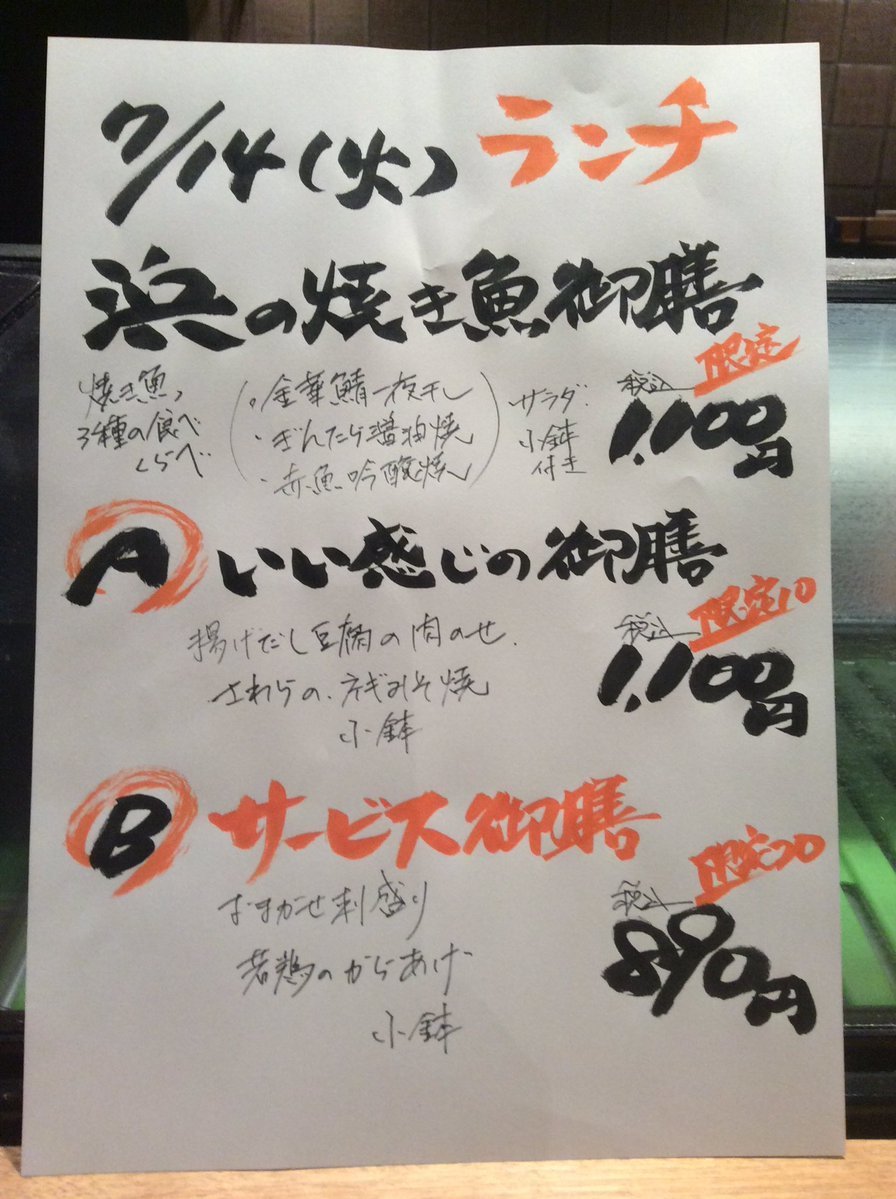 7/14(火) ランチ
浜の焼き魚御膳
限定
焼き魚、
3種の食べ
くらべ
・金華鯖一夜干し
・ぎんたら醤油焼
・赤魚吟醸焼
サラダ・
小鉢
付き
税込
1,100円
A いい感じの御膳
限定10
揚げだし豆腐の肉のせ、
さわらの、ネギみそ焼
小鉢
税込
1,100円
B サービス御膳
限定20
おまかせ刺盛り
若鶏のからあげ
小鉢
税込
890円